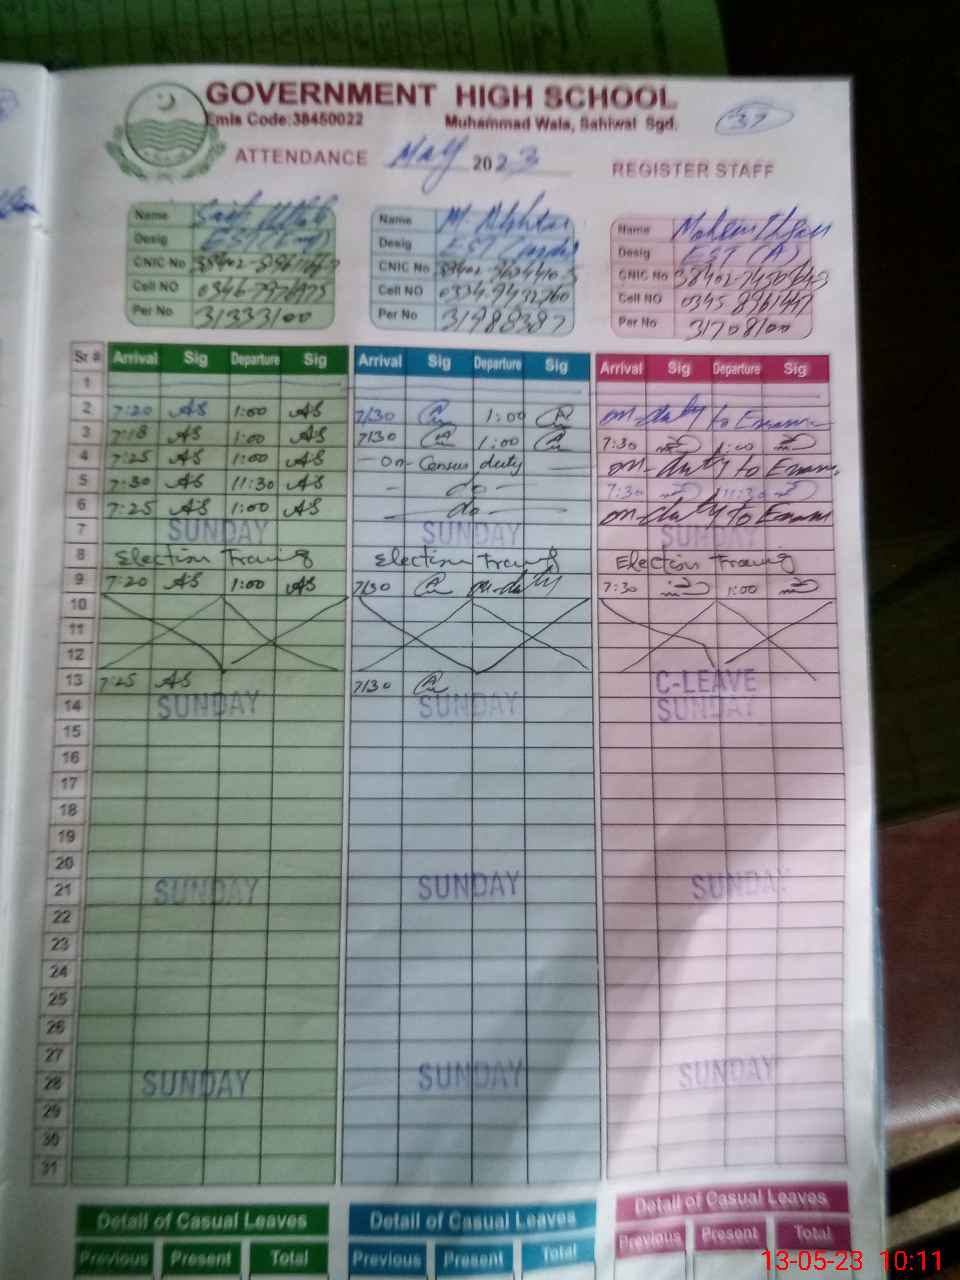 GOVERNMENT HIGH SCHOOL
Emis Code:38450022 Muhammad Wala, Sahiwal Sgd.
37
ATTENDANCE May 2023 REGISTER STAFF
Name Name M. Akhtar Name Mohsin
Desig EST (Eng) Desig EST Desig EST (A)
CNIC No CNIC No CNIC No
Cell NO Cell NO Cell NO
Per No 31333100 Per No 31988387 Per No 31708100
Sr # Arrival Sig Departure Sig Arrival Sig Departure Sig Arrival Sig Departure Sig
1
2 7:20 AS 1:00 AS 7:30 1:00 on-duty to Exam
3 7:18 AS 1:00 AS 7:30 1:00 7:30 1:00
4 7:25 AS 1:00 AS on Census duty on-duty to Exam
5 7:30 AS 11:30 AS - do - 7:30 11:30
6 7:25 AS 1:00 AS - do - on-duty to Exam
7 SUNDAY SUNDAY SUNDAY
8 Election Election Election
9 7:20 AS 1:00 AS 7:30 on-duty 7:30 1:00
10
11
12
13 7:25 AS 7:30 C-LEAVE
14 SUNDAY SUNDAY SUNDAY
15
16
17
18
19
20
21 SUNDAY SUNDAY SUNDAY
22
23
24
25
26
27
28 SUNDAY SUNDAY SUNDAY
29
30
31
Detail of Casual Leaves Detail of Casual Leaves Detail of Casual Leaves
Previous Present Total Previous Present Total Previous Present Total
13-05-23 10:11